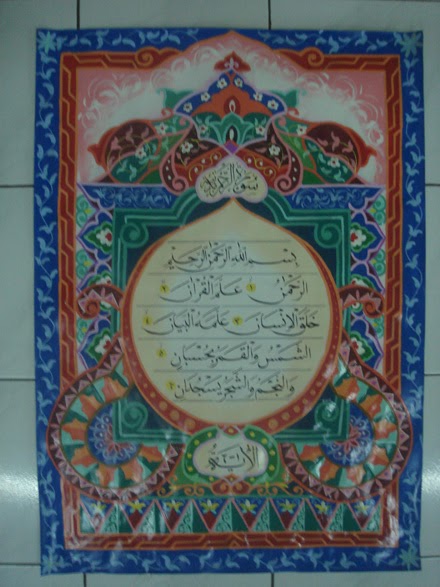 سورة
بسم الله الرحمن الرحيم
الرحمن ١ علم القرآن ٢
خلق الإنسان ٣ علمه البيان ٤
الشمس والقمر بحسبان ٥
والنجم والشجر يسجدان ٦
الآية